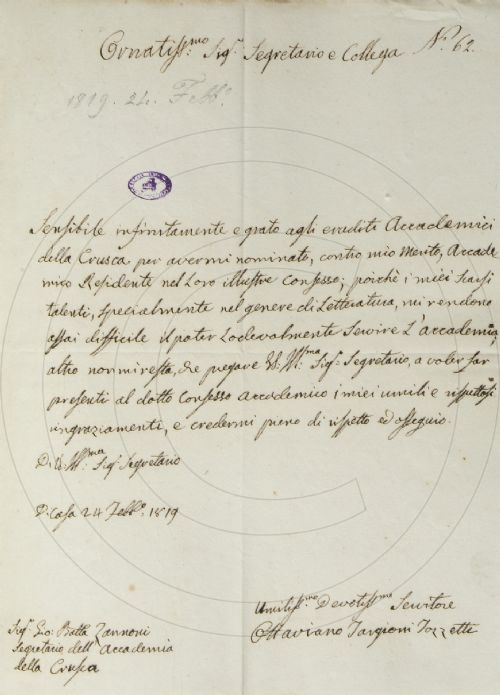 Ornatiss.mo Sig.r Segretario e Collega N.o 62.
1819. 24. Febb.o
Sensibile infinitamente e grato agli eruditi Accademici
della Crusca per avermi nominato, contro mio merito, Accade
mico Residente nel Loro illustre consesso; poichè i miei scarsi
talenti, specialmente nel genere di Letteratura, mi rendono
assai difficile il poter Lodevolmente Servire L'accademia;
altro non mi resta, che pregare VS. Ill.ma Sig.r Segretario, a voler far
presenti al dotto Consesso Accademico i miei umili e rispettosi
ringraziamenti, e credermi pieno di rispetto ed ossequio.
Di VS. Ill.ma Sig.r Segretario
Di Casa 24 Febb.o 1819
Umiliss.mo Devotiss.mo Servitore
Ottaviano Targioni Tozzetti
Sig.r Gio. Batta Zannoni
Segretario dell'Accademia
della Crusca